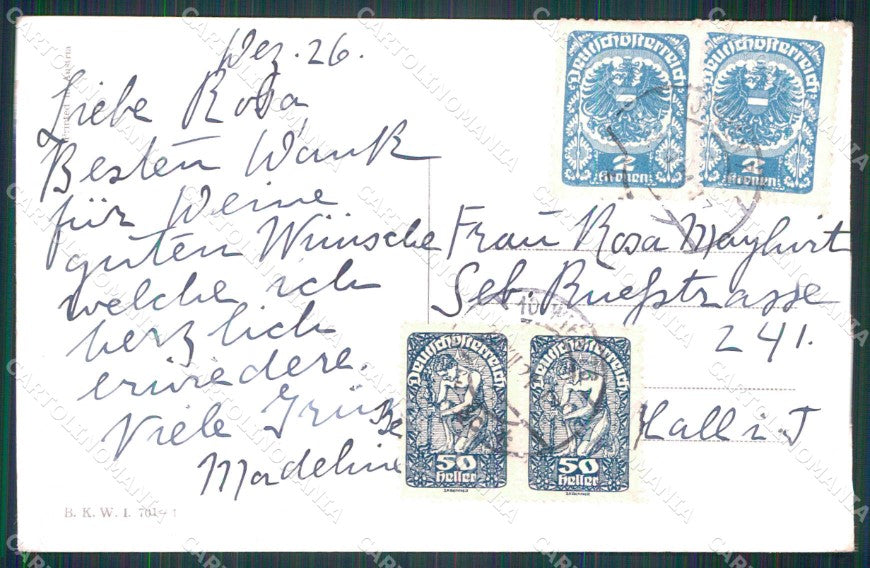 Dez. 26.
Liebe Rosa,
Besten Dank
für Deine
guten Wünsche
welche ich
herzlich
erwiedere.
Viele Grüße
Madeline
Frau Rosa Mayhirt
Seb. Rueßstrasse
241.
Hall i. T
Deutschösterreich
2
Kronen
Deutschösterreich
2
Kronen
Deutschösterreich
50
Heller
Deutschösterreich
50
Heller
B. K. W. I.
CARTOLINOMANIA